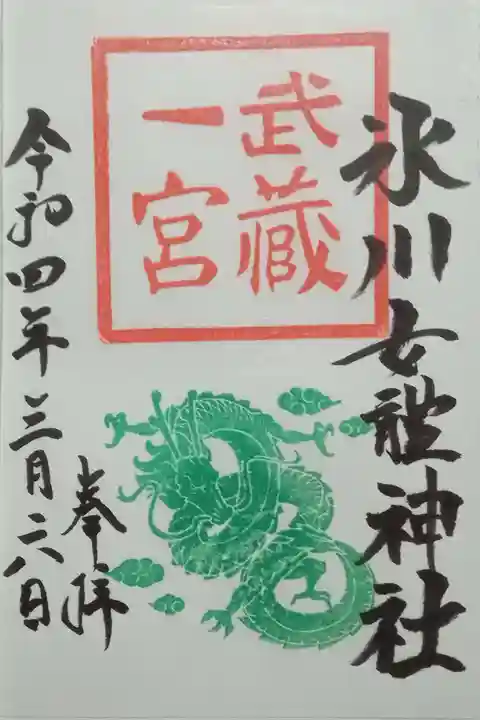 氷川女體神社
武藏
一宮
奉拝
令和四年三月二六日